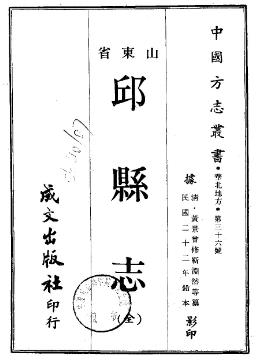 中國方志叢書・華北地方・第三十六號
據 清・黃景曾修靳淵然等纂
民國二十二年鉛本 影印
山東省
邱縣志
(全)
成文出版社印行